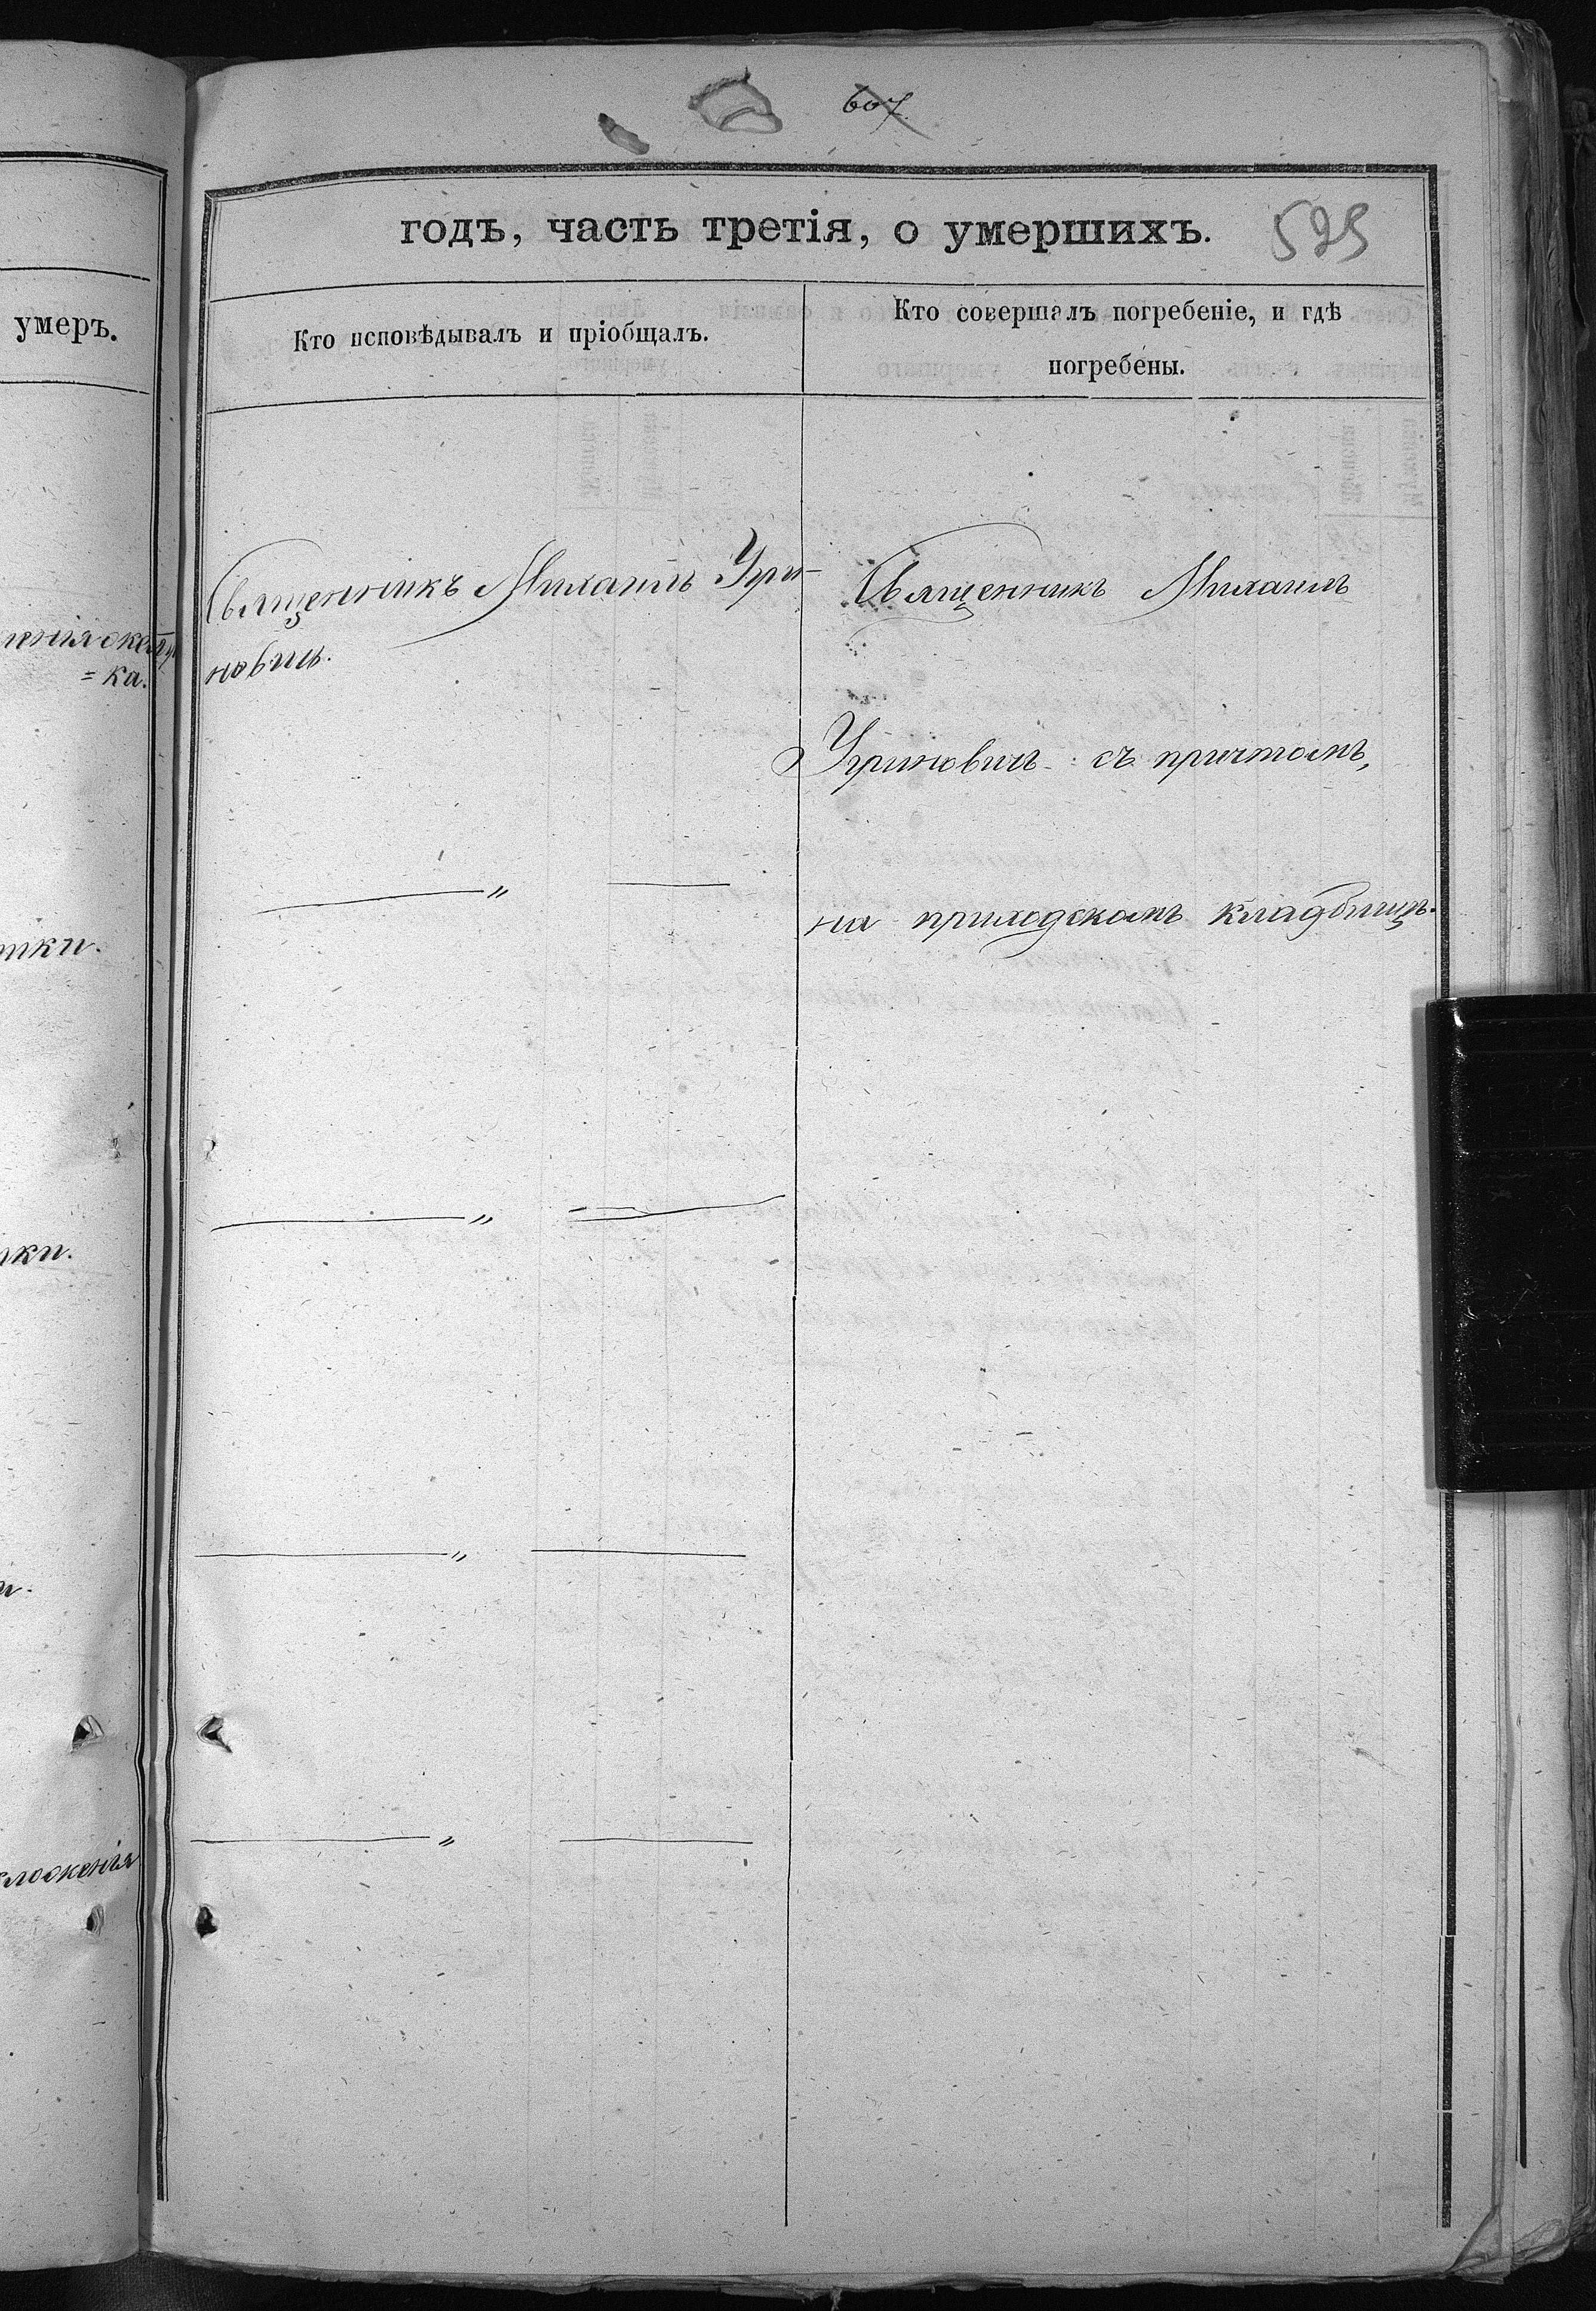 607
годъ, часть третія, о умершихъ.
595
умеръ.
Кто исповѣдывалъ и пріобщалъ.
Кто совершалъ погребеніе, и гдѣ
погребены.
Священникъ Михаилъ Угри-
новичъ.
= ка.
Священникъ Михаилъ
Угриновичъ съ причтомъ,
на приходскомъ кладбищѣ.
〃
〃
〃
〃